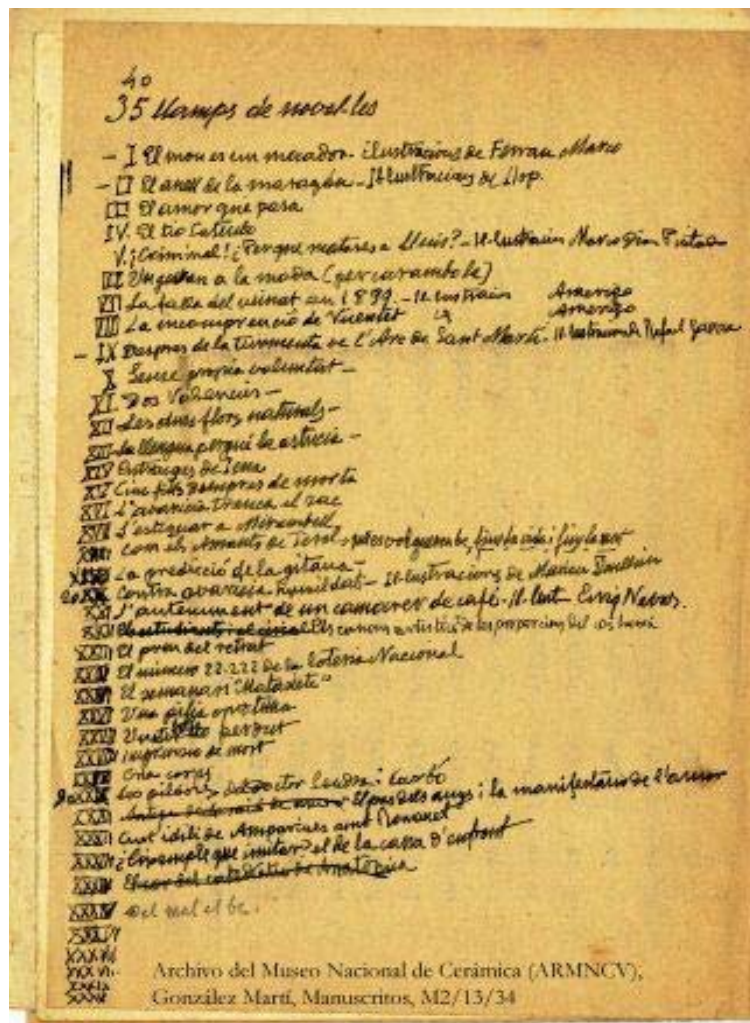 40
35 llamps de novel·les
- I El mon es un mercador - ilustracions de Ferran Marco
- II El anell de la maragda - Il·lustracions de Llop.
III El amor que pasa
IV. El tio Catculo
V. ¡Criminal! ¿Perque matares a Lluis? - Il·lustracion Marco Dias Pintado
VI Un a la moda (per carambola)
VII La falla del veinat en 1899 - Il·lustracions Amerigo
VIII La incomprenció de Vicentet Amerigo
- IX Despres de la turmenta ve l'Arc de Sant Martí - Il·lustracions de Rafael
X Sense propia voluntat -
XI. Dos Valencies -
XII Les dues flors naturals -
XIII La llengua perque la astucia -
XIV Estranges de
XV Cinc fills de morta
XVI L'avaricia trenca el sac
XVII L'estiguar a Mirambell
XVIII Com els Amants de Terol
XIX La predicció de la gitana -
XX Contra avaricia humildat - Il·lustracions de
XXI L'auteniment de un camarer de café - Il·lust. Enriq Navas.
XXII Els canons artistics de les proporcions del cos humá
XXIII El preu del retrat
XXIV El número 22.222 de la Loteria Nacional
XXV El semanari "Matasete"
XXVI Una oportuna
XXVII perdut
XXVIII de mort
XXIX corps
XXX Les pildores del doctor i Carbó
XXXI El pas dels anys i la manifestacio de l'amor
XXXII Curt idili de Amparines amb Nonanet
XXXIII ¿Eixemple que imitar? el de la casa d'enfront
XXXIV El cor del catedratic de Anatomica
XXXV Del mal el be.
XXXVI
XXXVII
XXXVIII
XXXIX
XXXX
Archivo del Museo Nacional de Cerámica (ARMNCV),
González Martí, Manuscritos, M2/13/34